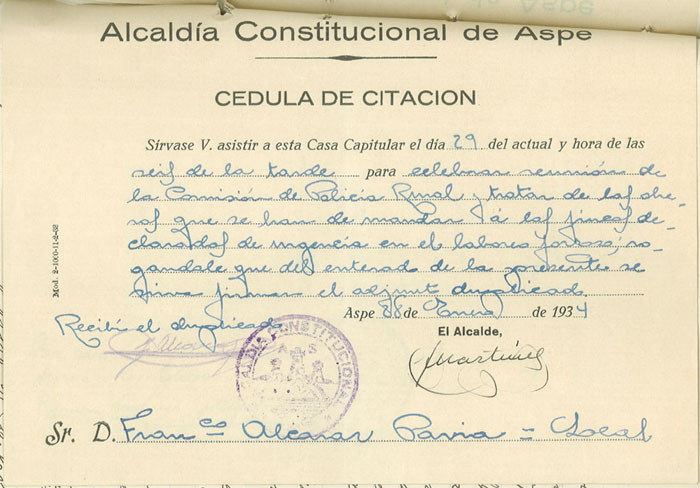 Alcaldía Constitucional de Aspe
CEDULA DE CITACION
Sírvase V. asistir a esta Casa Capitular el día 29 del actual y hora de las
seis de la tarde para celebrar reunión de
la Comisión de Policia Rural y tratar de las obre-
ros que se han de mandar á las fincas de-
claradas de urgencia en el laboreo forzoso; ro-
gandole que del enterado de la presente se
sirva firmar el adjunto duplicado.
Aspe 28 de Enero de 1934
Recibí el duplicado
El Alcalde,
Martinez
ALCALDIA CONSTITUCIONAL
Sr. D. Fran.co Alcaraz Pavia = Local
Mod. 2-1000-11-2-32